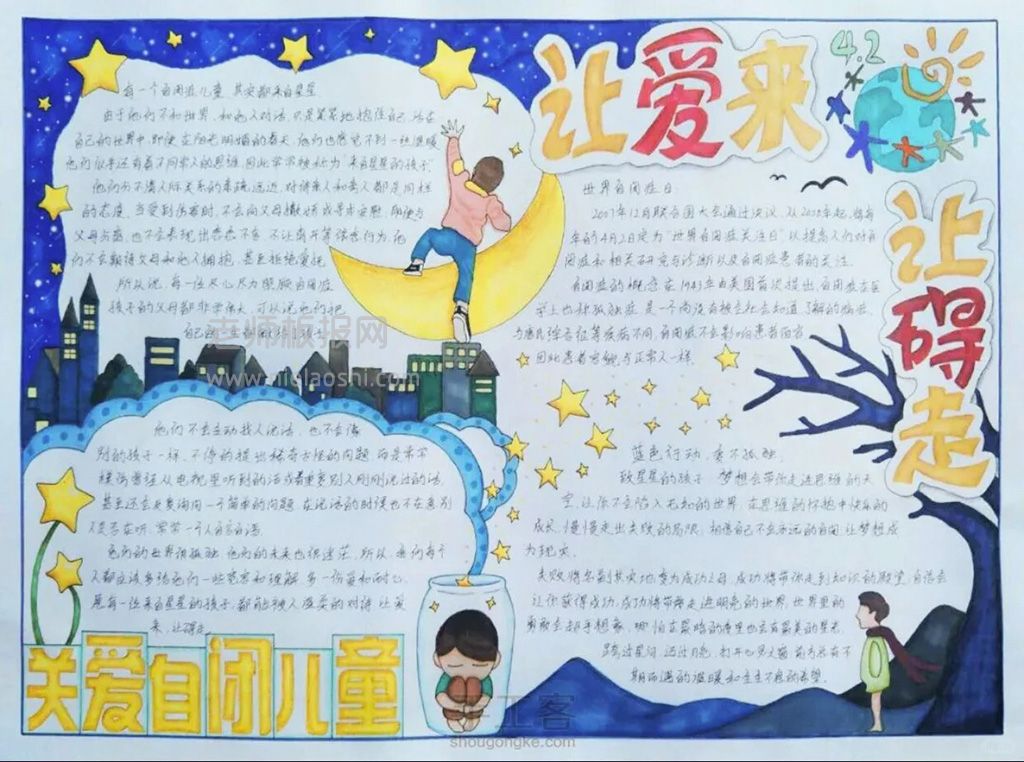 让爱来
4.2
让碍走
有一个自闭症儿童,其实都来自星星
由于他们不和世界、和他人对话,只是紧紧地抱住自己,活在
自己的世界中,即使在阳光明媚的春天,他们也感觉不到一丝温暖
他们似乎还有着不同常人的思维,因此常常被称为“来自星星的孩子”
他们不懂人际关系的亲疏远近,对待亲人和旁人都是同样
的态度,当受到伤害时,不会向父母撒娇或寻求安慰,即使与
父母分离,也不会表现出
他
们不会期待父母和他人拥抱,甚至拒绝爱抚
所以说,每一位尽心尽力照顾自闭症
孩子的父母都非常伟大,可以说他们把
自己
老师板报网
www.aiqlaoshi.com
世界自闭症日:
2007年12月联合国大会通过决议,从2008年起,将每
年的4月2日定为“世界自闭症关注日”,以提高人们对自
闭症和相关研究与诊断以及自闭症患者的关注。
自闭症的概念在1943年由美国首次提出,自闭症在医
学上也称孤独症,是一个尚没有被全社会知道、了解的病症,
与唐氏综合征等疾病不同,自闭症不会影响患者面容
因此患者容貌与正常人一样。
他们不会主动找人说话,也不会像
别的孩子一样,不停的提出稀奇古怪的问题,而是常常
模仿曾经从电视里听到的话或者重复别人刚刚说过的话,
甚至还会反复询问一个简单的问题,在说话的时候也不在意别
人是否在听,常常一个人自言自语
他们的世界很孤独,他们的未来也很迷茫,所以,我们每个
人都应该多给他们一些宽容和理解,多一份爱和耐心,
愿每一位来自星星的孩子,都能被人温柔的对待,让爱
来,让碍走
蓝色行动,爱不孤独。
致星星的孩子:梦想会带你走进思维的天
空,让你不会陷入无知的世界,在思维的怀抱中快乐的
成长,慢慢走出失败的局限,相信自己不会永远的自闭,让梦想成
为现实。
失败将
地变为成功之母,成功将带你走到知识的殿堂,自信会
让你获得成功,成功将带你走进明亮的世界,世界里的
哪怕在最暗的夜里也会有最美的星光,
跨过星河,迈过月亮,
期而遇的温暖和生生不息的希望。
关爱自闭儿童
手工客
shougongke.com